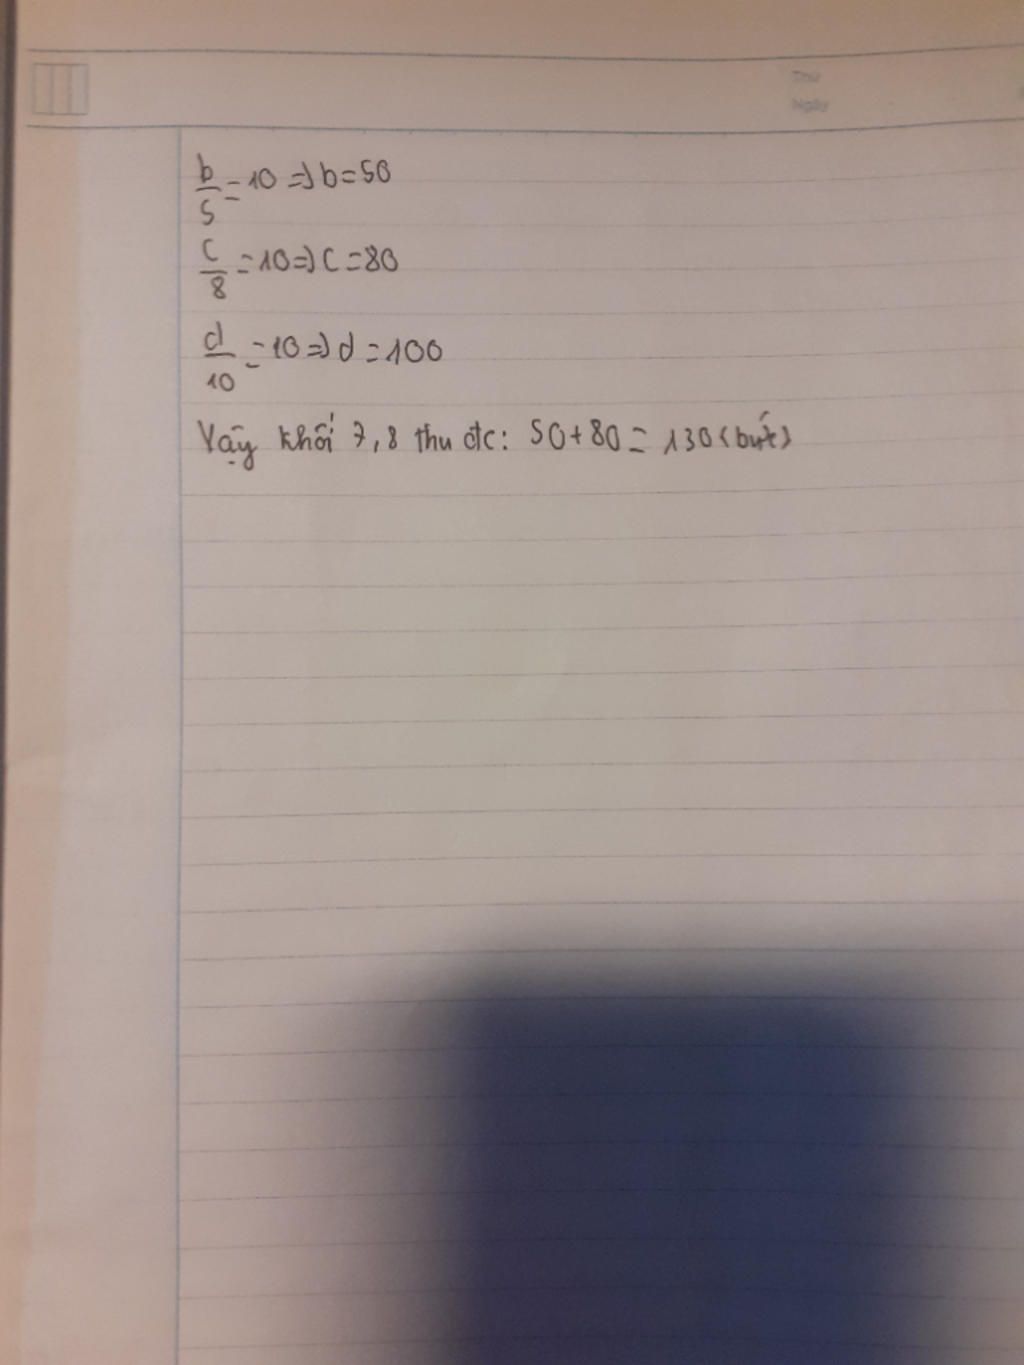 Thứ
Ngày
b/5 = 10 => b = 50
c/8 = 10 => c = 80
d/10 = 10 => d = 100
Vậy khối 7, 8 thu đc: 50 + 80 = 130 (bút)